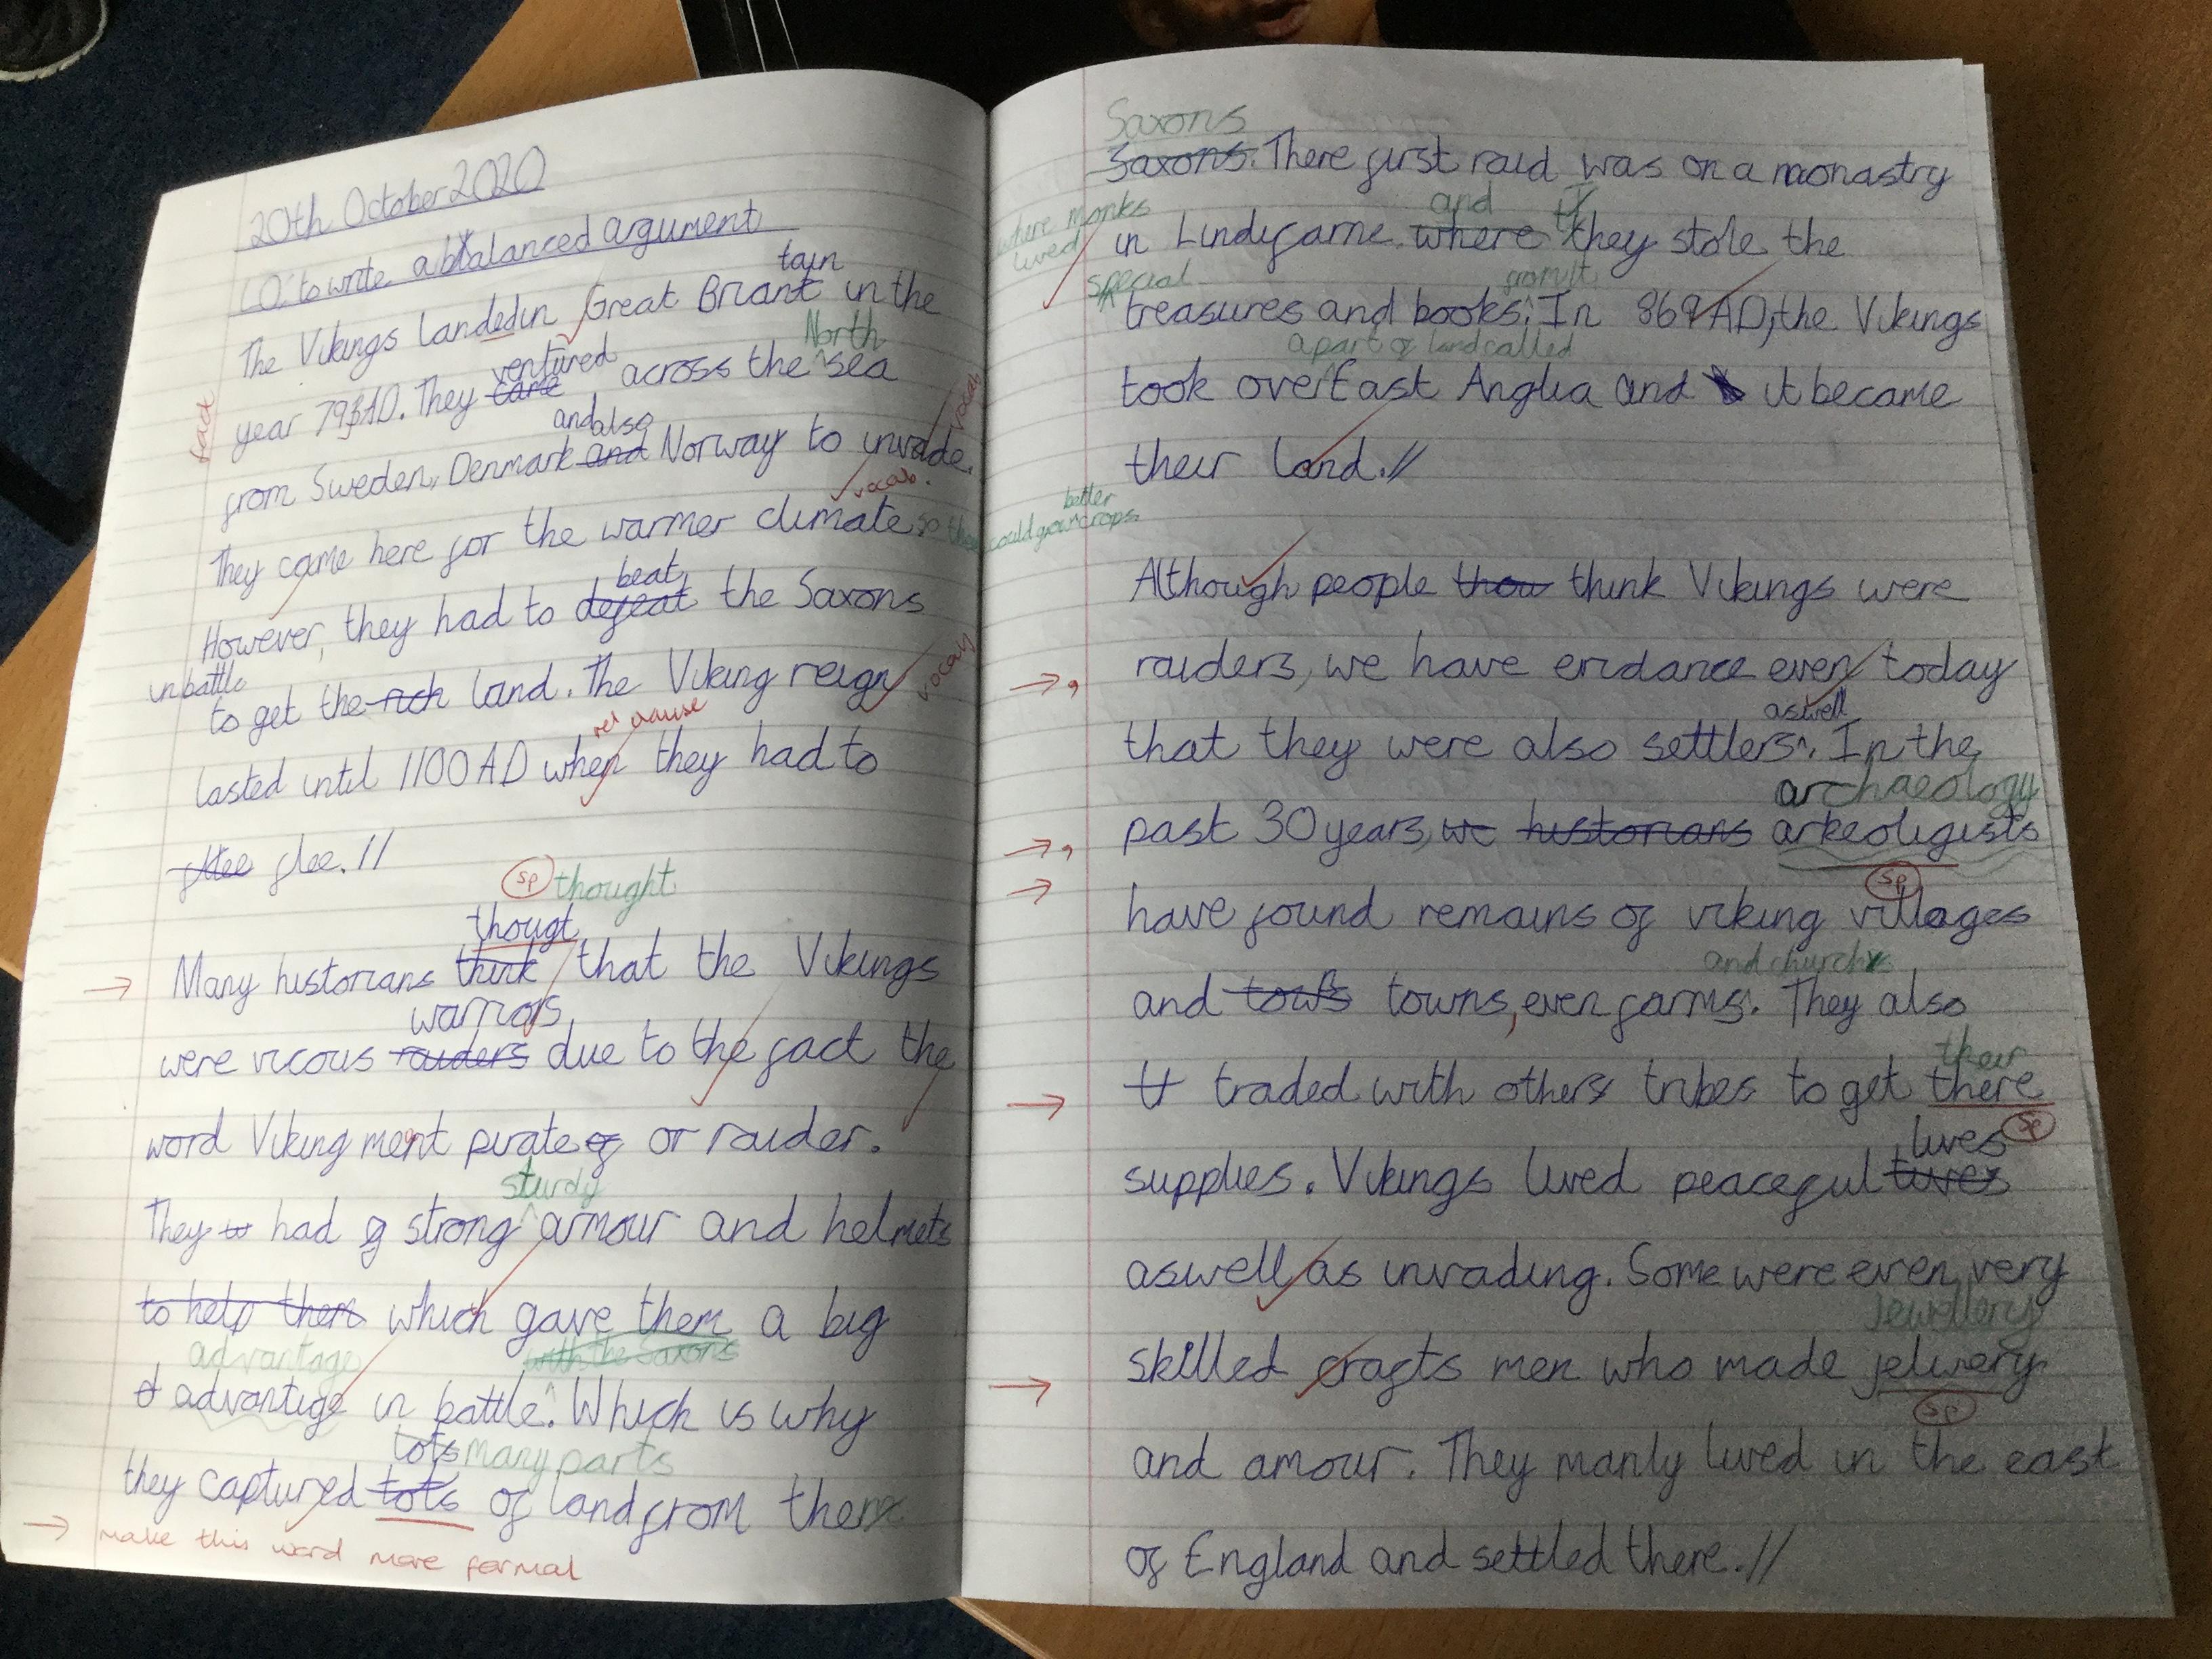 20th October 2020
LO: to write a balanced argument
tain
The Vikings landed in Great Briant in the
ventured North
fact
year 793AD. They came across the sea
and also vocab
from Sweden, Denmark and Norway to invade.
vocab.
They came here for the warmer climate so they could grow better crops.
beat
However, they had to defeat the Saxons
in battle
to get the rich land. The Viking reign vocab
rel clause
lasted until 1100AD when they had to
flee. //
sp thought
thougt
→ Many historians think that the Vikings
warriors
were vicous raiders due to the fact the
word Viking ment pirate or raider.
sturdy
They had strong armour and helmets
to help them which gave them a big
advantage with the Saxons
advantige in battle. Which is why
lots many parts
they captured lots of land from them
→ make this word more formal
Saxons
Saxons. There first raid was on a monastry
where monks lived and
in Lindifarne where they stole the
special from it
treasures and books. In 869AD, the Vikings
a part of land called
took over East Anglia and it became
their land. //
Although people thow think Vikings were
→, raiders, we have evidance even today
aswell
that they were also settlers. In the
archaeology
→, past 30 years, we historians arkeoligists
sp
→ have found remains of viking villages
and churchs
and towns, even farms. They also
their
→ traded with others tribes to get there
lives sp
supplies. Vikings lived peaceful
aswell as invading. Some were even very
Jewellery
→ skilled crafts men who made jelwery
sp
and amour. They manly lived in the east
of England and settled there. //